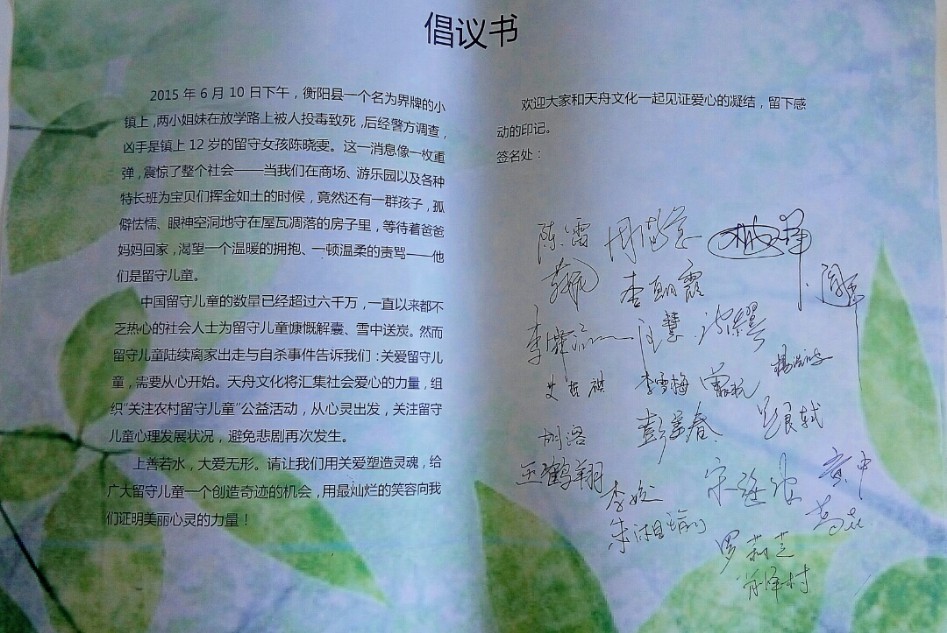 倡议书
2015 年 6 月 10 日下午，衡阳县一个名为界牌的小
镇上，两小姐妹在放学路上被人投毒致死，后经警方调查，
凶手是镇上 12 岁的留守女孩陈晓雯。这一消息像一枚重
弹，震惊了整个社会——当我们在商场、游乐园以及各种
特长班为宝贝们挥金如土的时候，竟然还有一群孩子，孤
僻怯懦、眼神空洞地守在屋瓦凋落的房子里，等待着爸爸
妈妈回家，渴望一个温暖的拥抱、一顿温柔的责骂——他
们是留守儿童。
中国留守儿童的数量已经超过六千万，一直以来都不
乏热心的社会人士为留守儿童慷慨解囊、雪中送炭。然而
留守儿童陆续离家出走与自杀事件告诉我们：关爱留守儿
童，需要从心开始。天舟文化将汇集社会爱心的力量，组
织“关注农村留守儿童”公益活动，从心灵出发，关注留守
儿童心理发展状况，避免悲剧再次发生。
上善若水，大爱无形。请让我们用关爱塑造灵魂，给
广大留守儿童一个创造奇迹的机会，用最灿烂的笑容向我
们证明美丽心灵的力量！
欢迎大家和天舟文化一起见证爱心的凝结，留下感
动的印记。
签名处：
陈雷
李朝霞
艾哲祺
李雪梅
胡洛
彭美春
王鹤翔
罗莉芝